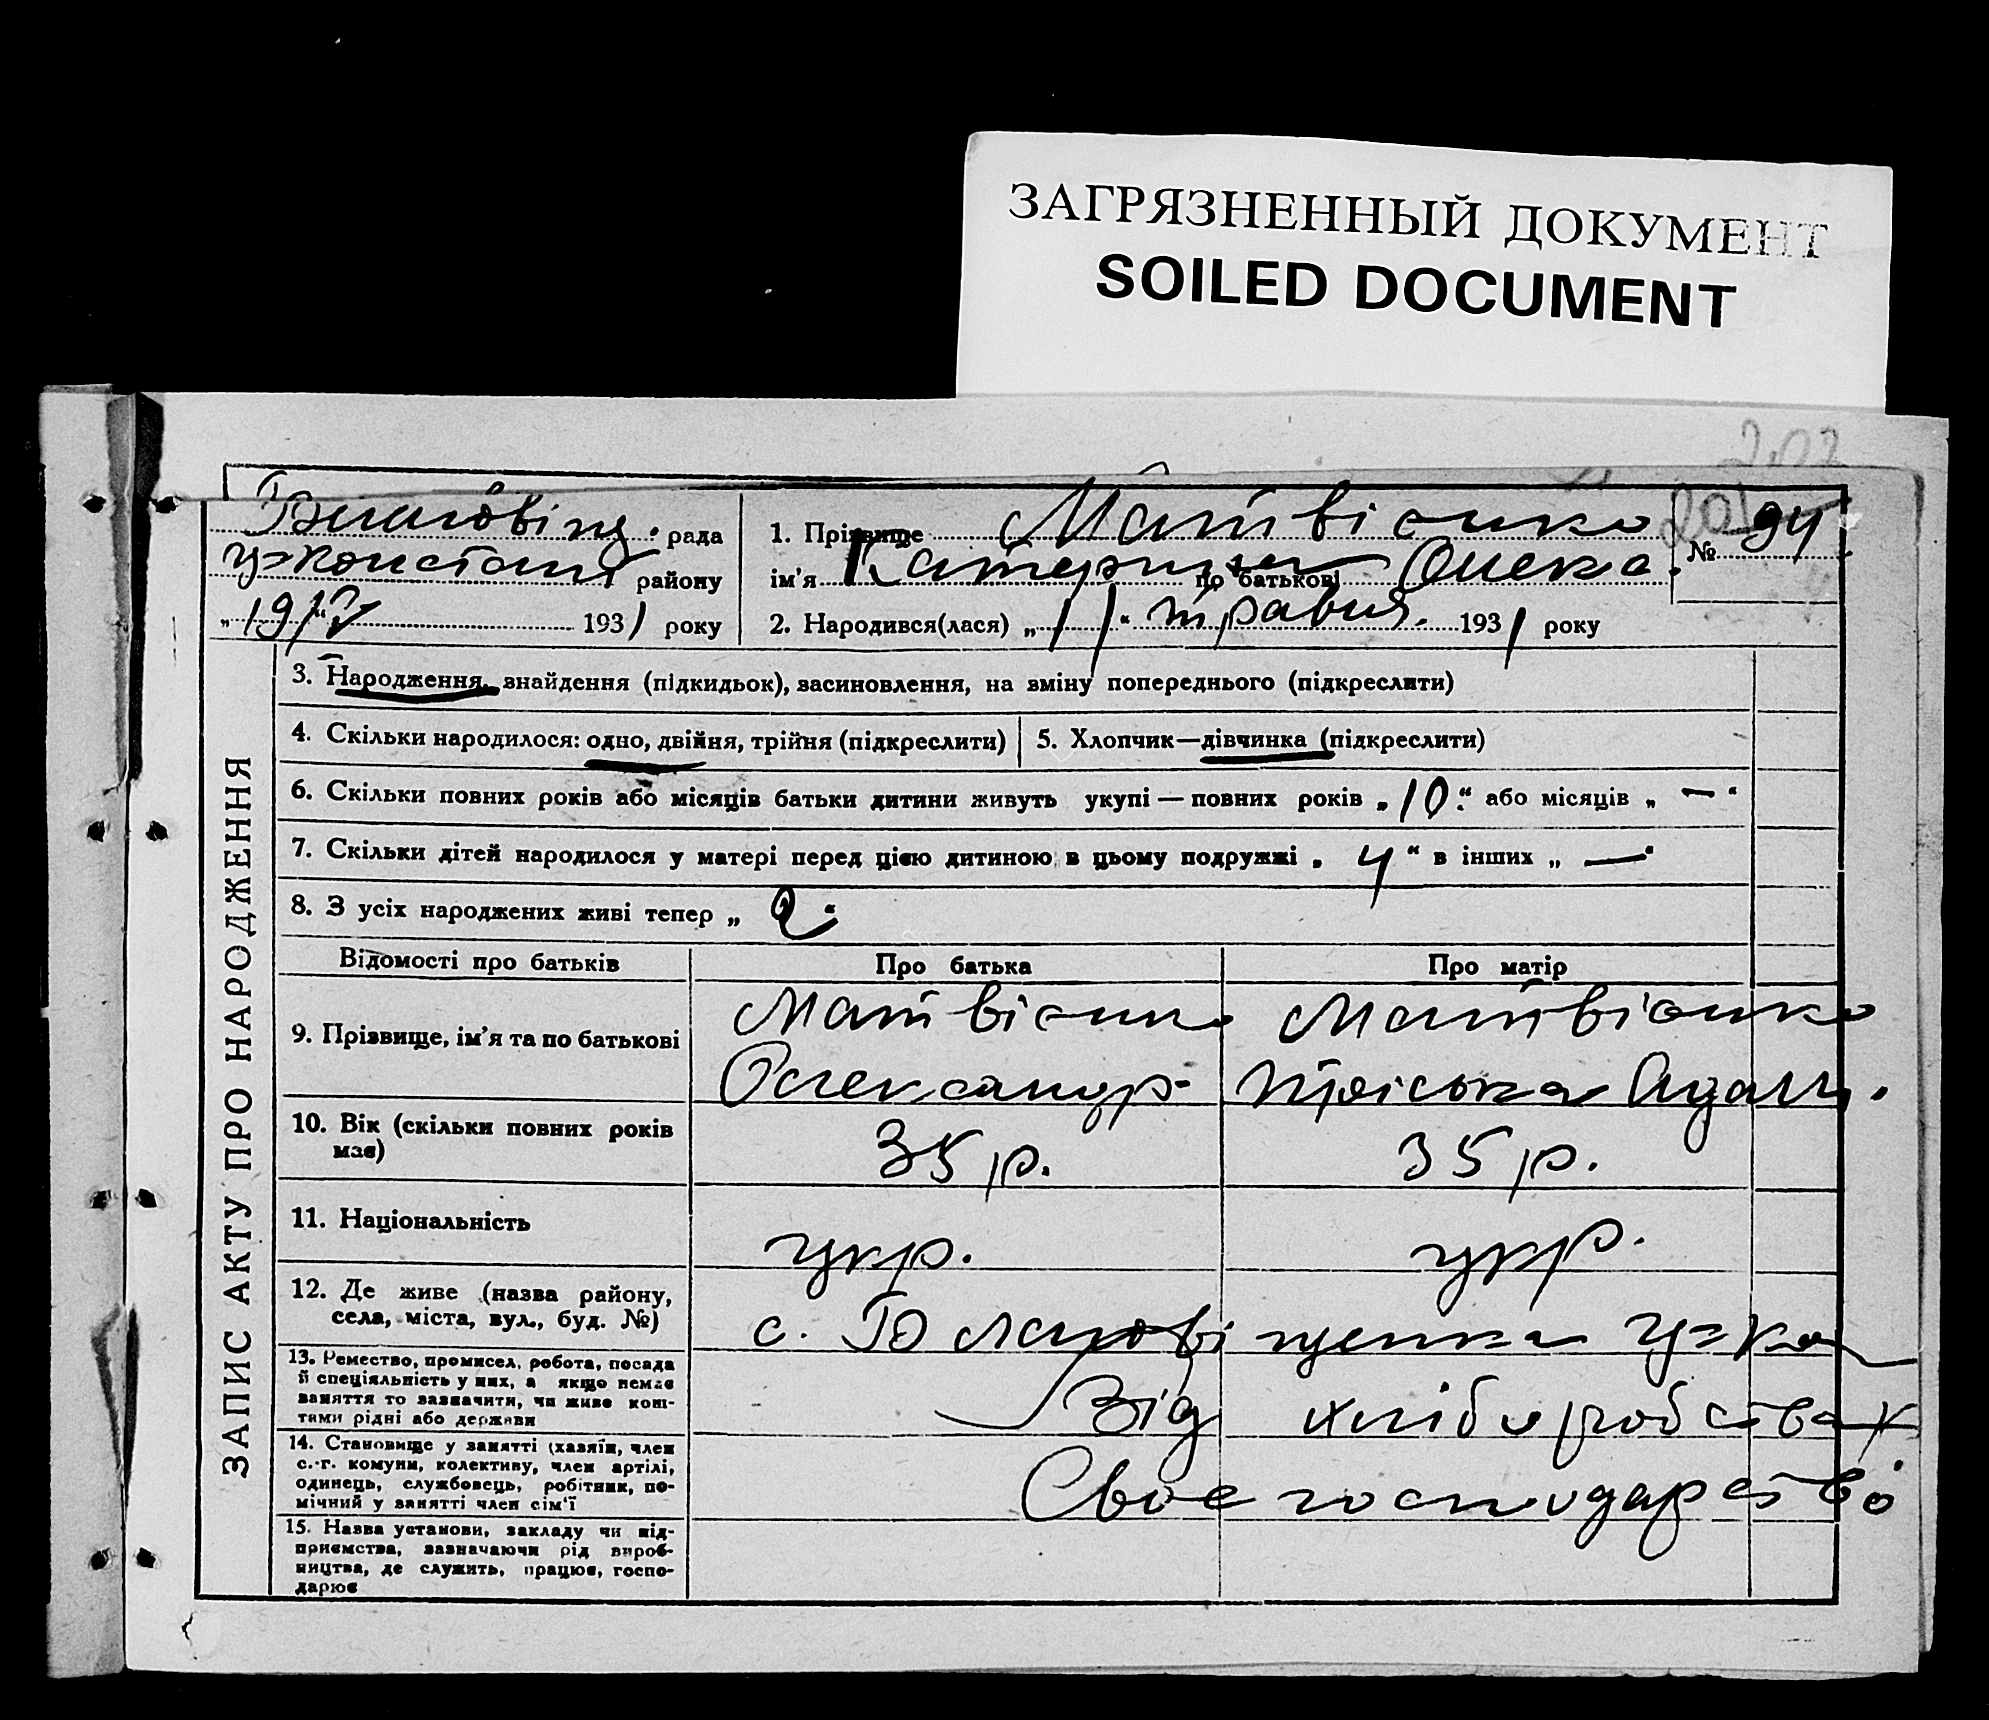 ЗАГРЯЗНЕННЫЙ ДОКУМЕНТ
SOILED DOCUMENT
рада
району
193 1 року
1. Прізвище Матвієнко
ім'я Катерина по батькові Олекса.
№ 94
2. Народився(лася) „ 11 “ травня. 193 1 року
ЗАПИС АКТУ ПРО НАРОДЖЕННЯ
3. Народження, знайдення (підкидьок), засиновлення, на зміну попереднього (підкреслити)
4. Скільки народилося: одно, двійня, трійня (підкреслити)
5. Хлопчик—дівчинка (підкреслити)
6. Скільки повних років або місяців батьки дитини живуть укупі — повних років „ 10 “ або місяців „ — “
7. Скільки дітей народилося у матері перед цією дитиною в цьому подружжі „ 4 “ в інших „ — “
8. З усіх народжених живі тепер „ 2 “
Відомості про батьків
Про батька
Про матір
9. Прізвище, ім'я та по батькові
Матвієнко
Олександр
Матвієнко
10. Вік (скільки повних років
має)
35 р.
35 р.
11. Національність
укр.
укр.
12. Де живе (назва району,
села, міста, вул., буд. №)
с.
13. Ремество, промисел, робота, посада
й спеціяльність у них, а якщо немає
заняття то зазначити, чи живе кош-
тами рідні або держави
Від хліборобства
14. Становище у занятті (хазяїн, член
с.-г. комуни, колективу, член артілі,
одинець, службовець, робітник, по-
мічний у занятті член сім'ї
Своє господарство
15. Назва установи, закладу чи під-
приємства, зазначаючи рід вироб-
ництва, де служить, працює, госпо-
дарює